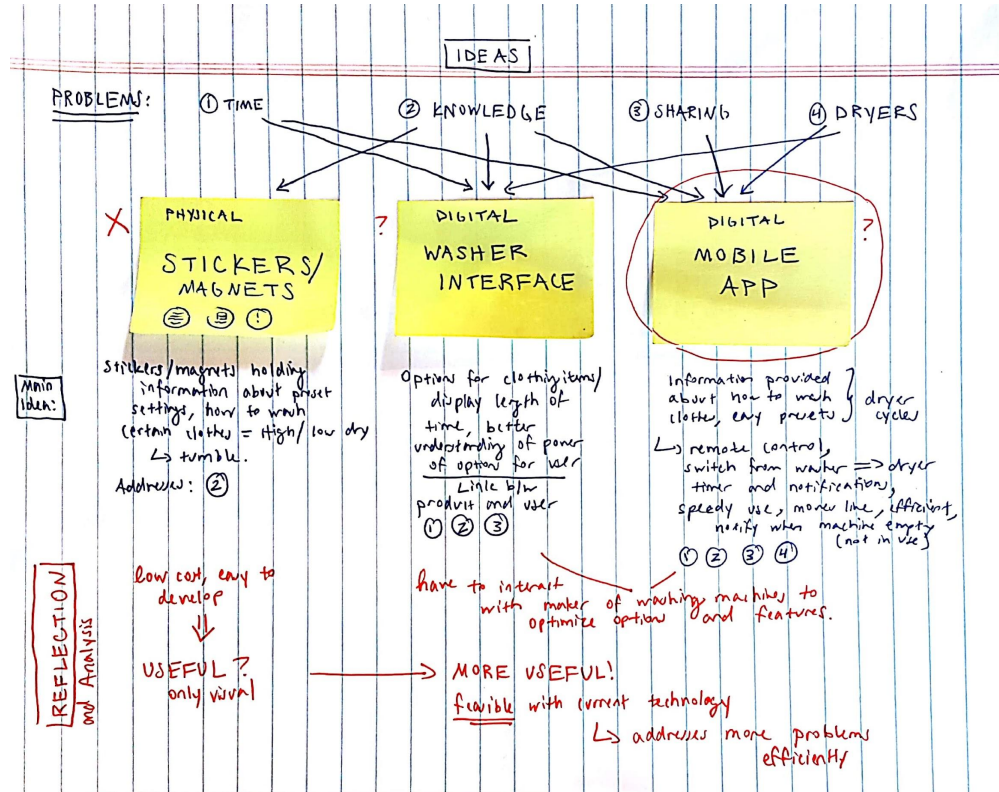 IDEAS
PROBLEMS:
① TIME
② KNOWLEDGE
③ SHARING
④ DRYERS
X
PHYSICAL
STICKERS/
MAGNETS
!
?
DIGITAL
WASHER
INTERFACE
?
DIGITAL
MOBILE
APP
Main
Idea:
Stickers/magnets holding
information about preset
settings, how to wash
certain clothes = High/low dry
↳ tumble.
Addresses: ②
Options for clothing items/
display length of
time, better
understanding of power
of option for user
Link b/w
product and user
① ② ③
Information provided
about how to wash
clothes, easy presets
dryer
cycles
↳ remote control,
switch from washer => dryer
timer and notification,
speedy use, efficient,
notify when machine empty
(not in use)
① ② ③ ④
REFLECTION
and Analysis
low cost, easy to
develop
USEFUL?
only visual
have to interact
with maker of washing machines to
optimize option and features.
MORE USEFUL!
feasible with current technology
↳ addresses more problems
efficiently